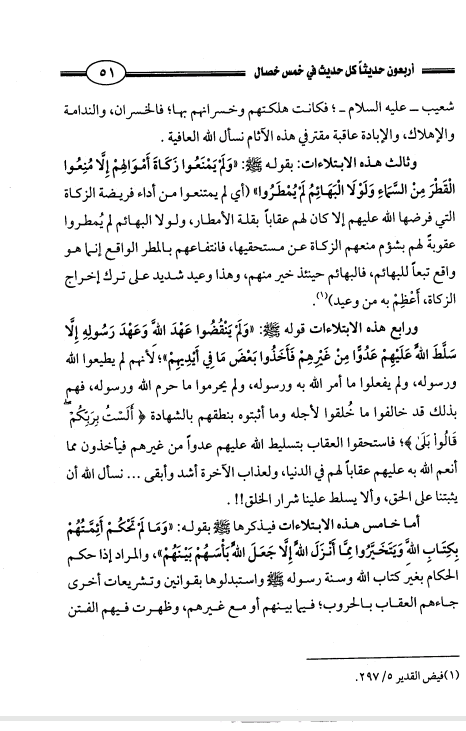 أربعون حديثاً كل حديث في خمس خصال
٥١
شعيب ــ عليه السلام ــ؛ فكانت هلكتهم وخسرانهم بها؛ فالخسران، والندامة
والإهلاك، والإبادة عاقبة مقترفي هذه الآثام نسأل الله العافية.
وثالث هذه الابتلاءات: بقوله ﷺ: «وَلَمْ يَمْنَعُوا زَكَاةَ أَمْوَالِهِمْ إِلَّا مُنِعُوا
الْقَطْرَ مِنْ السَّمَاءِ وَلَوْلَا الْبَهَائِمُ لَمْ يُمْطَرُوا» (أي لم يمتنعوا من أداء فريضة الزكاة
التي فرضها الله عليهم إلا كان لهم عقاباً بقلة الأمطار، ولولا البهائم لم يُمطروا
عقوبةً لهم بشؤم منعهم الزكاة عن مستحقيها، فانتفاعهم بالمطر الواقع إنما هو
واقع تبعاً للبهائم، فالبهائم حينئذ خير منهم، وهذا وعيد شديد على ترك إخراج
الزكاة، أَعْظِمْ به من وعيد)(١).
ورابع هذه الابتلاءات قوله ﷺ: «وَلَمْ يَنْقُضُوا عَهْدَ اللهَّ وَعَهْدَ رَسُولِهِ إِلَّا
سَلَّطَ اللهُ عَلَيْهِمْ عَدُوًّا مِنْ غَيْرِهِمْ فَأَخَذُوا بَعْضَ مَا فِي أَيْدِيهِمْ»؛ لأنهم لم يطيعوا الله
ورسوله، ولم يفعلوا ما أمر الله به ورسوله، ولم يحرموا ما حرم الله ورسوله، فهم
بذلك قد خالفوا ما خُلقوا لأجله وما أثبتوه بنطقهم بالشهادة ﴿ أَلَسْتُ بِرَبِّكُمْ ۖ
قَالُوا۟ بَلَىٰ ﴾؛ فاستحقوا العقاب بتسليط الله عليهم عدواً من غيرهم فيأخذون مما
أنعم الله به عليهم عقاباً لهم في الدنيا، ولعذاب الآخرة أشد وأبقى... نسأل الله أن
يثبتنا على الحق، وألا يسلط علينا شرار الخلق!! .
أما خامس هذه الابتلاءات فيذكرها ﷺ بقوله: «وَمَا لَمْ تَحْكُمْ أَئِمَّتُهُمْ
بِكِتَابِ اللهَّ وَيَتَخَيَّرُوا مِمَّا أَنْزَلَ اللهَُّ إِلَّا جَعَلَ اللهَُّ بَأْسَهُمْ بَيْنَهُمْ»، والمراد إذا حكم
الحكام بغير كتاب الله وسنة رسوله ﷺ واستبدلوها بقوانين وتشريعات أخرى
جاءهم العقاب بالحروب؛ فيما بينهم أو مع غيرهم، وظهرت فيهم الفتن
(١) فيض القدير ٥/ ٢٩٧.